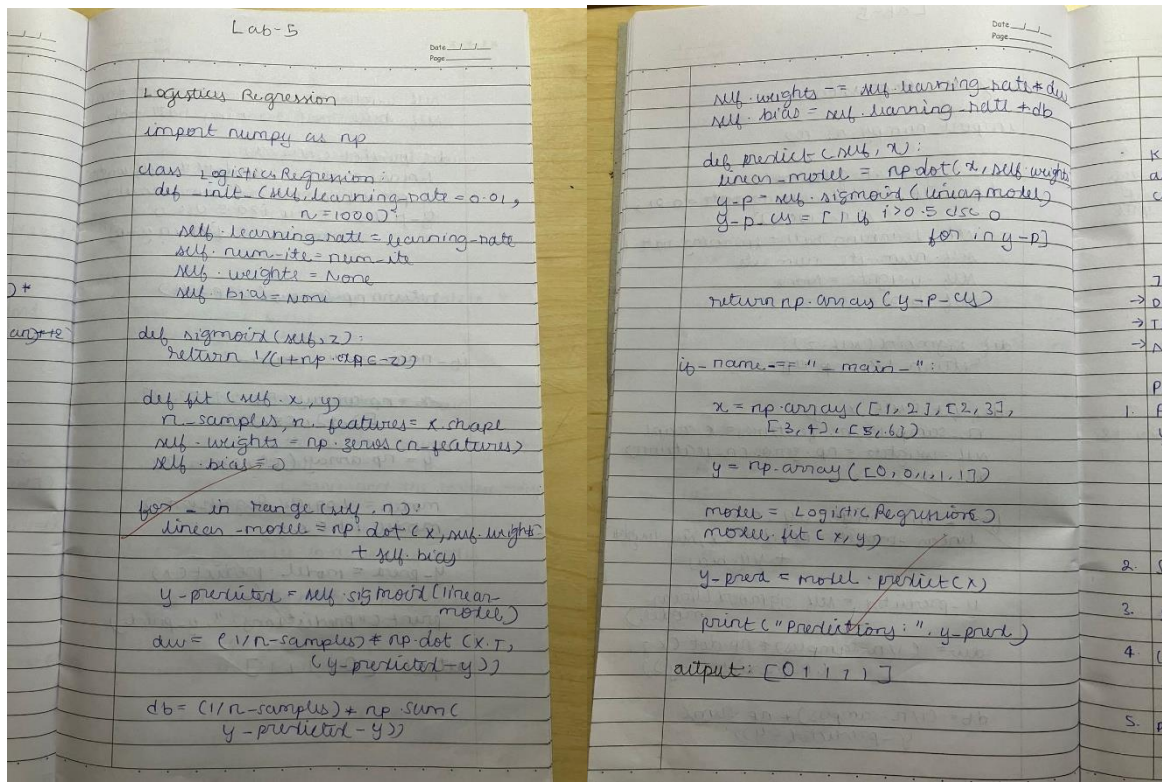 Lab-5
Date
Page
Logistics Regression
import numpy as np
class LogisticsRegression:
def _init_ (self, learning_rate = 0.01,
n = 1000):
self.learning_rate = learning_rate
self.num_ite = num_ite
self.weights = None
self.bias = None
def sigmoid (self, z):
return 1/(1+np.exp(-z))
def fit (self. x, y)
n_samples, n_features = x.shape
self.weights = np.zeros(n_features)
self.bias = 0
for _ in range (self.n):
linear_model = np.dot(x, self.weights
+ self.bias
y-predicted = self.sigmoid(linear-
model)
dw = (1/n-samples) * np.dot (X.T,
(y-predicted - y))
db = (1/n-samples) * np.sum(
y-predicted - y))
Date
Page
self.weights -= self.learning_rate * dw
self.bias = self.learning_rate * db
def predict (self, x):
linear_model = np.dot(x, self.weights
y-p = self.sigmoid (linear model)
y-p-cls = [1 if i>0.5 else 0
for in y-p]
return np.array (y-p-cls)
if _name_ == "_main_":
x = np.array ([1, 2], [2, 3],
[3, 4], [5, 6])
y = np.array ([0, 0, 1, 1, 1])
model = LogisticRegression()
model.fit (x, y)
y-pred = model.predict(x)
print ("Predictions:", y-pred)
output: [0 1 1 1 1]
1.
2.
3.
4.
5.